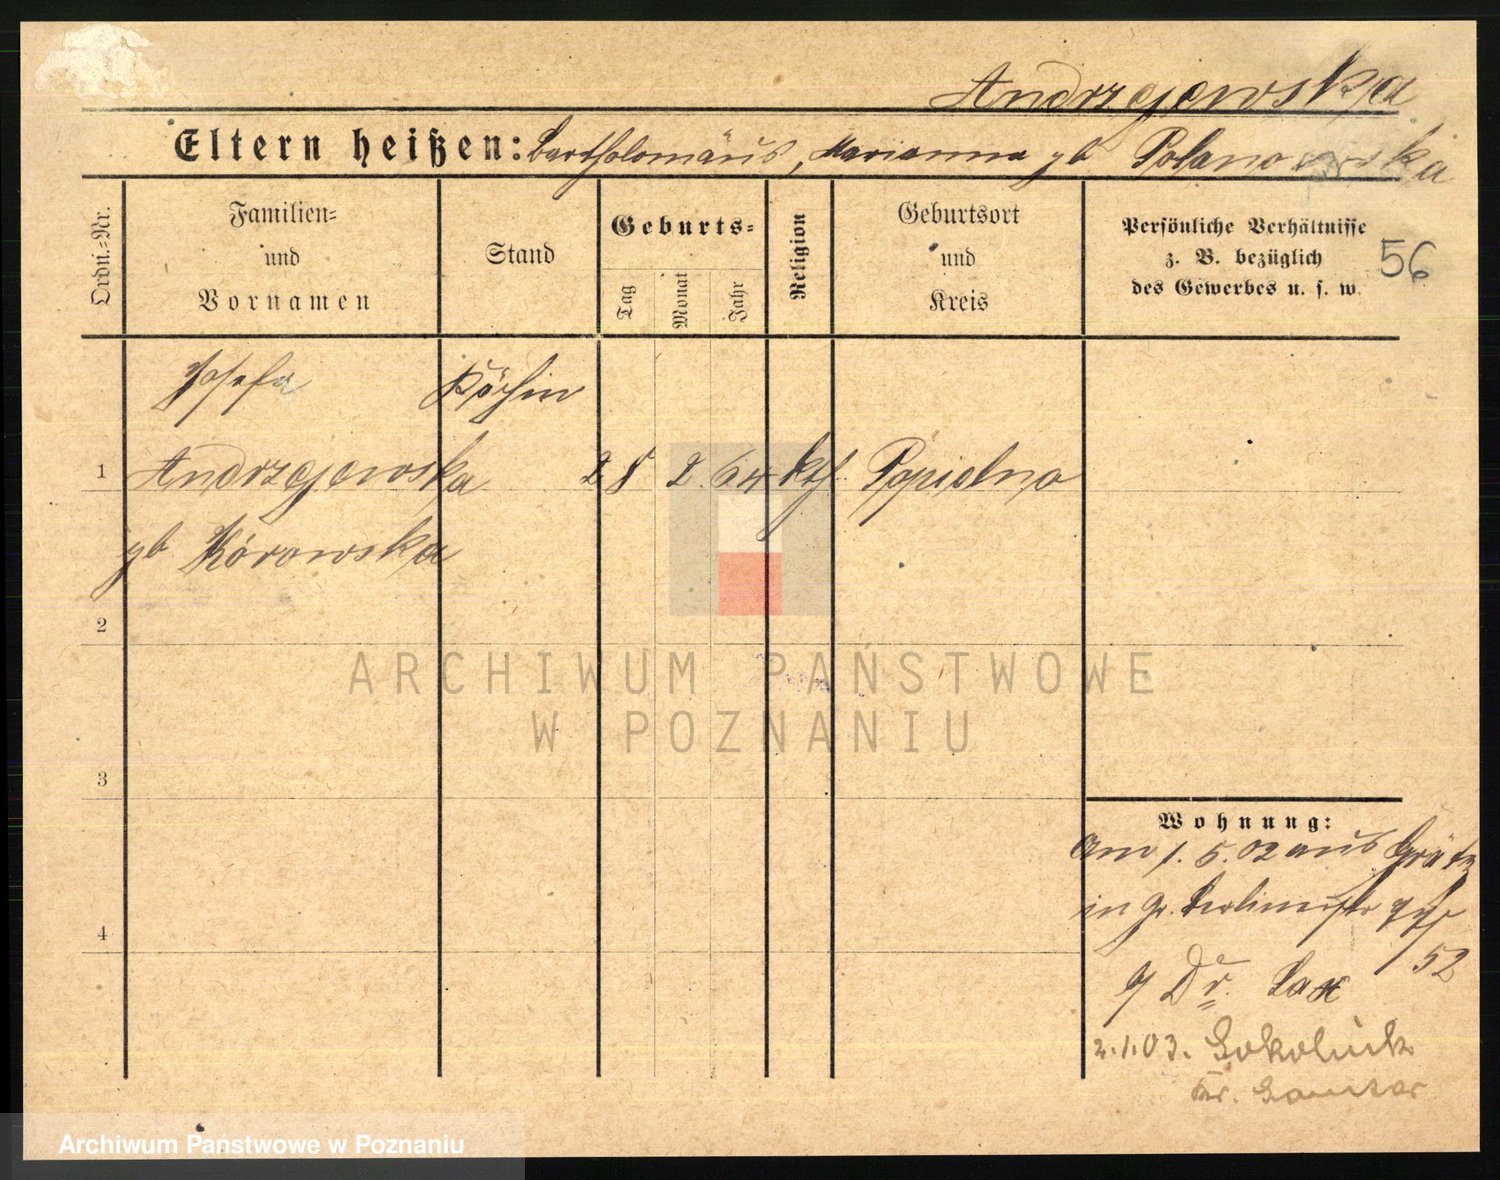 Andrzejewska
Eltern heißen: Bartholomäus, Marianna gb Polanowska
Ordn.-Nr.
Familien-
und
Vornamen
Stand
Geburts-
Tag
Monat
Jahr
Religion
Geburtsort
und
Kreis
Persönliche Verhältnisse
z. B. bezüglich
des Gewerbes u. s. w.
56
Josefa
Köchin
1
Andrzejewska
28
2.
64
kth.
Popielno
gb Kórowska
2
3
4
Wohnung:
Am 1. 5. 02 aus Grätz
in Gr. Berlinerstr
52
Dr. Lax
2.1.03. Sokolnik
Kr. Samter
ARCHIWUM PAŃSTWOWE
W POZNANIU
Archiwum Państwowe w Poznaniu